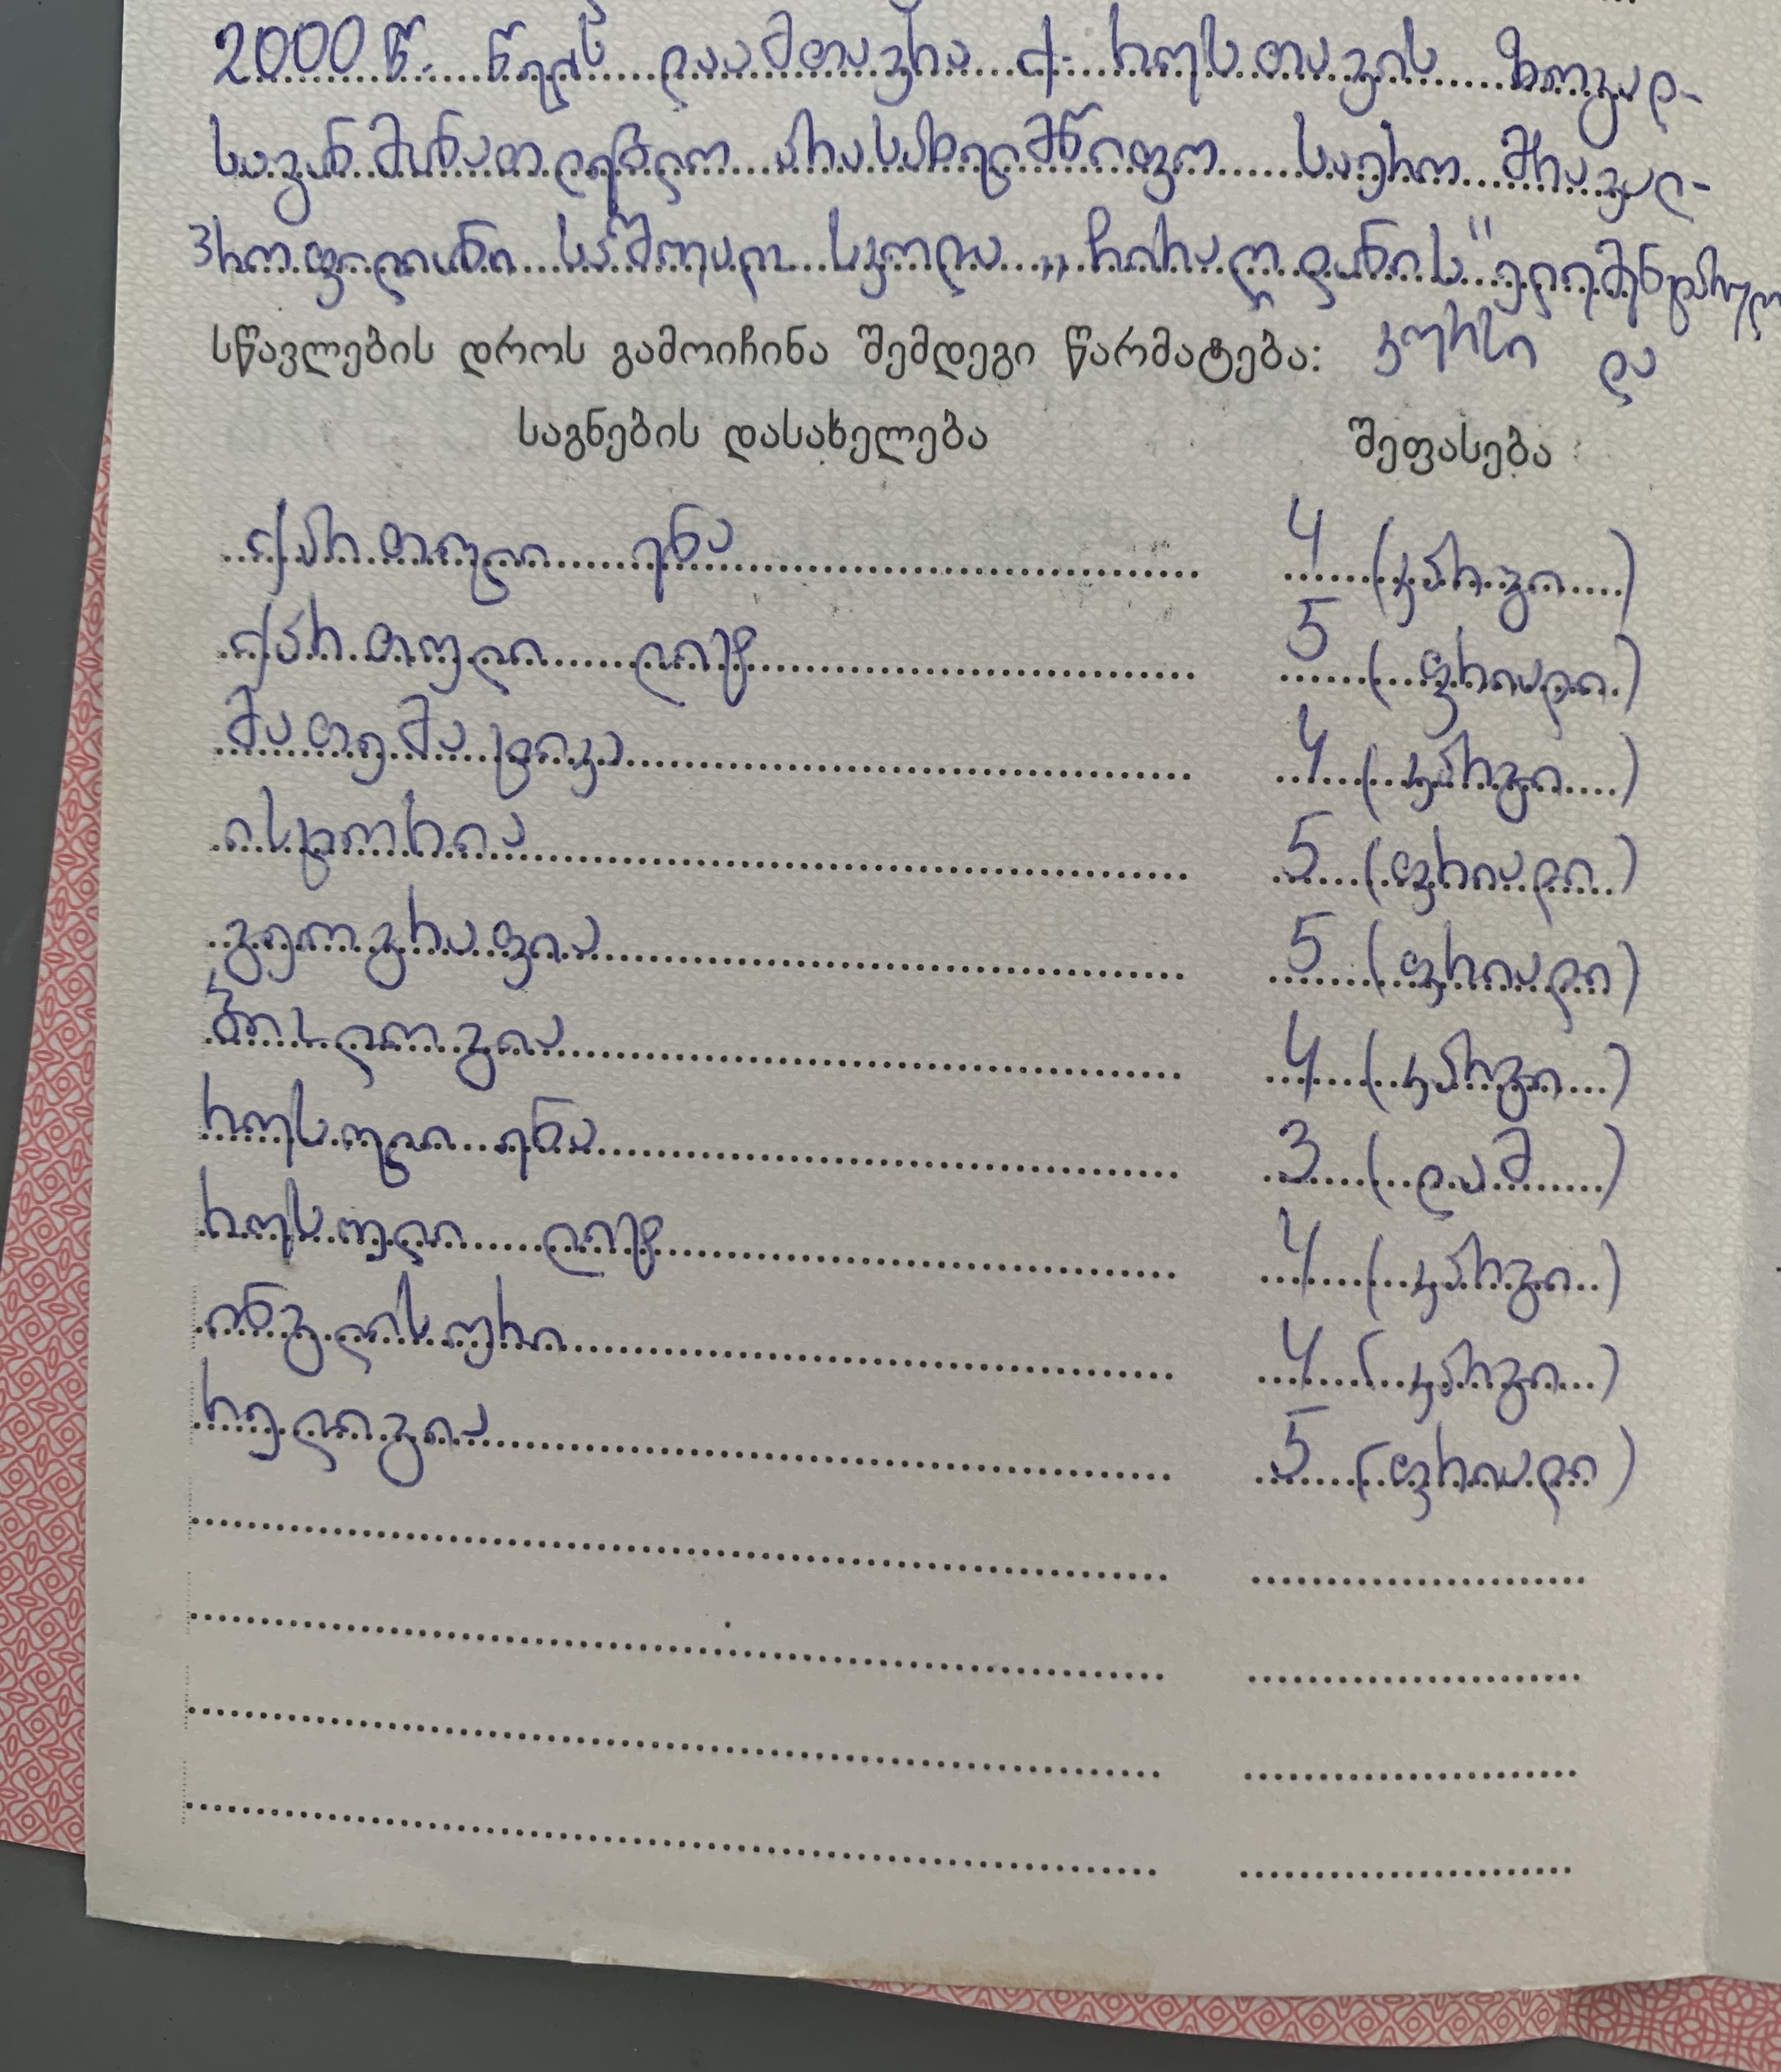 2000 წ. წელს დაამთავრა ქ. რუსთავის ზოგად-
საგანმანათლებლო არასახელმწიფო საერო მრავალ-
პროფილიანი საშუალო სკოლა „ჩირაღდანის" ელემენტარული
კურსი და
სწავლების დროს გამოიჩინა შემდეგი წარმატება:
საგნების დასახელება შეფასება
ქართული ენა 4 (კარგი)
ქართული ლიტ 5 (ფრიადი)
მათემატიკა 4 (კარგი)
ისტორია 5 (ფრიადი)
გეოგრაფია 5 (ფრიადი)
ბიოლოგია 4 (კარგი)
რუსული ენა 3 (დამ)
რუსული ლიტ 4 (კარგი)
ინგლისური 4 (კარგი)
რელიგია 5 (ფრიადი)